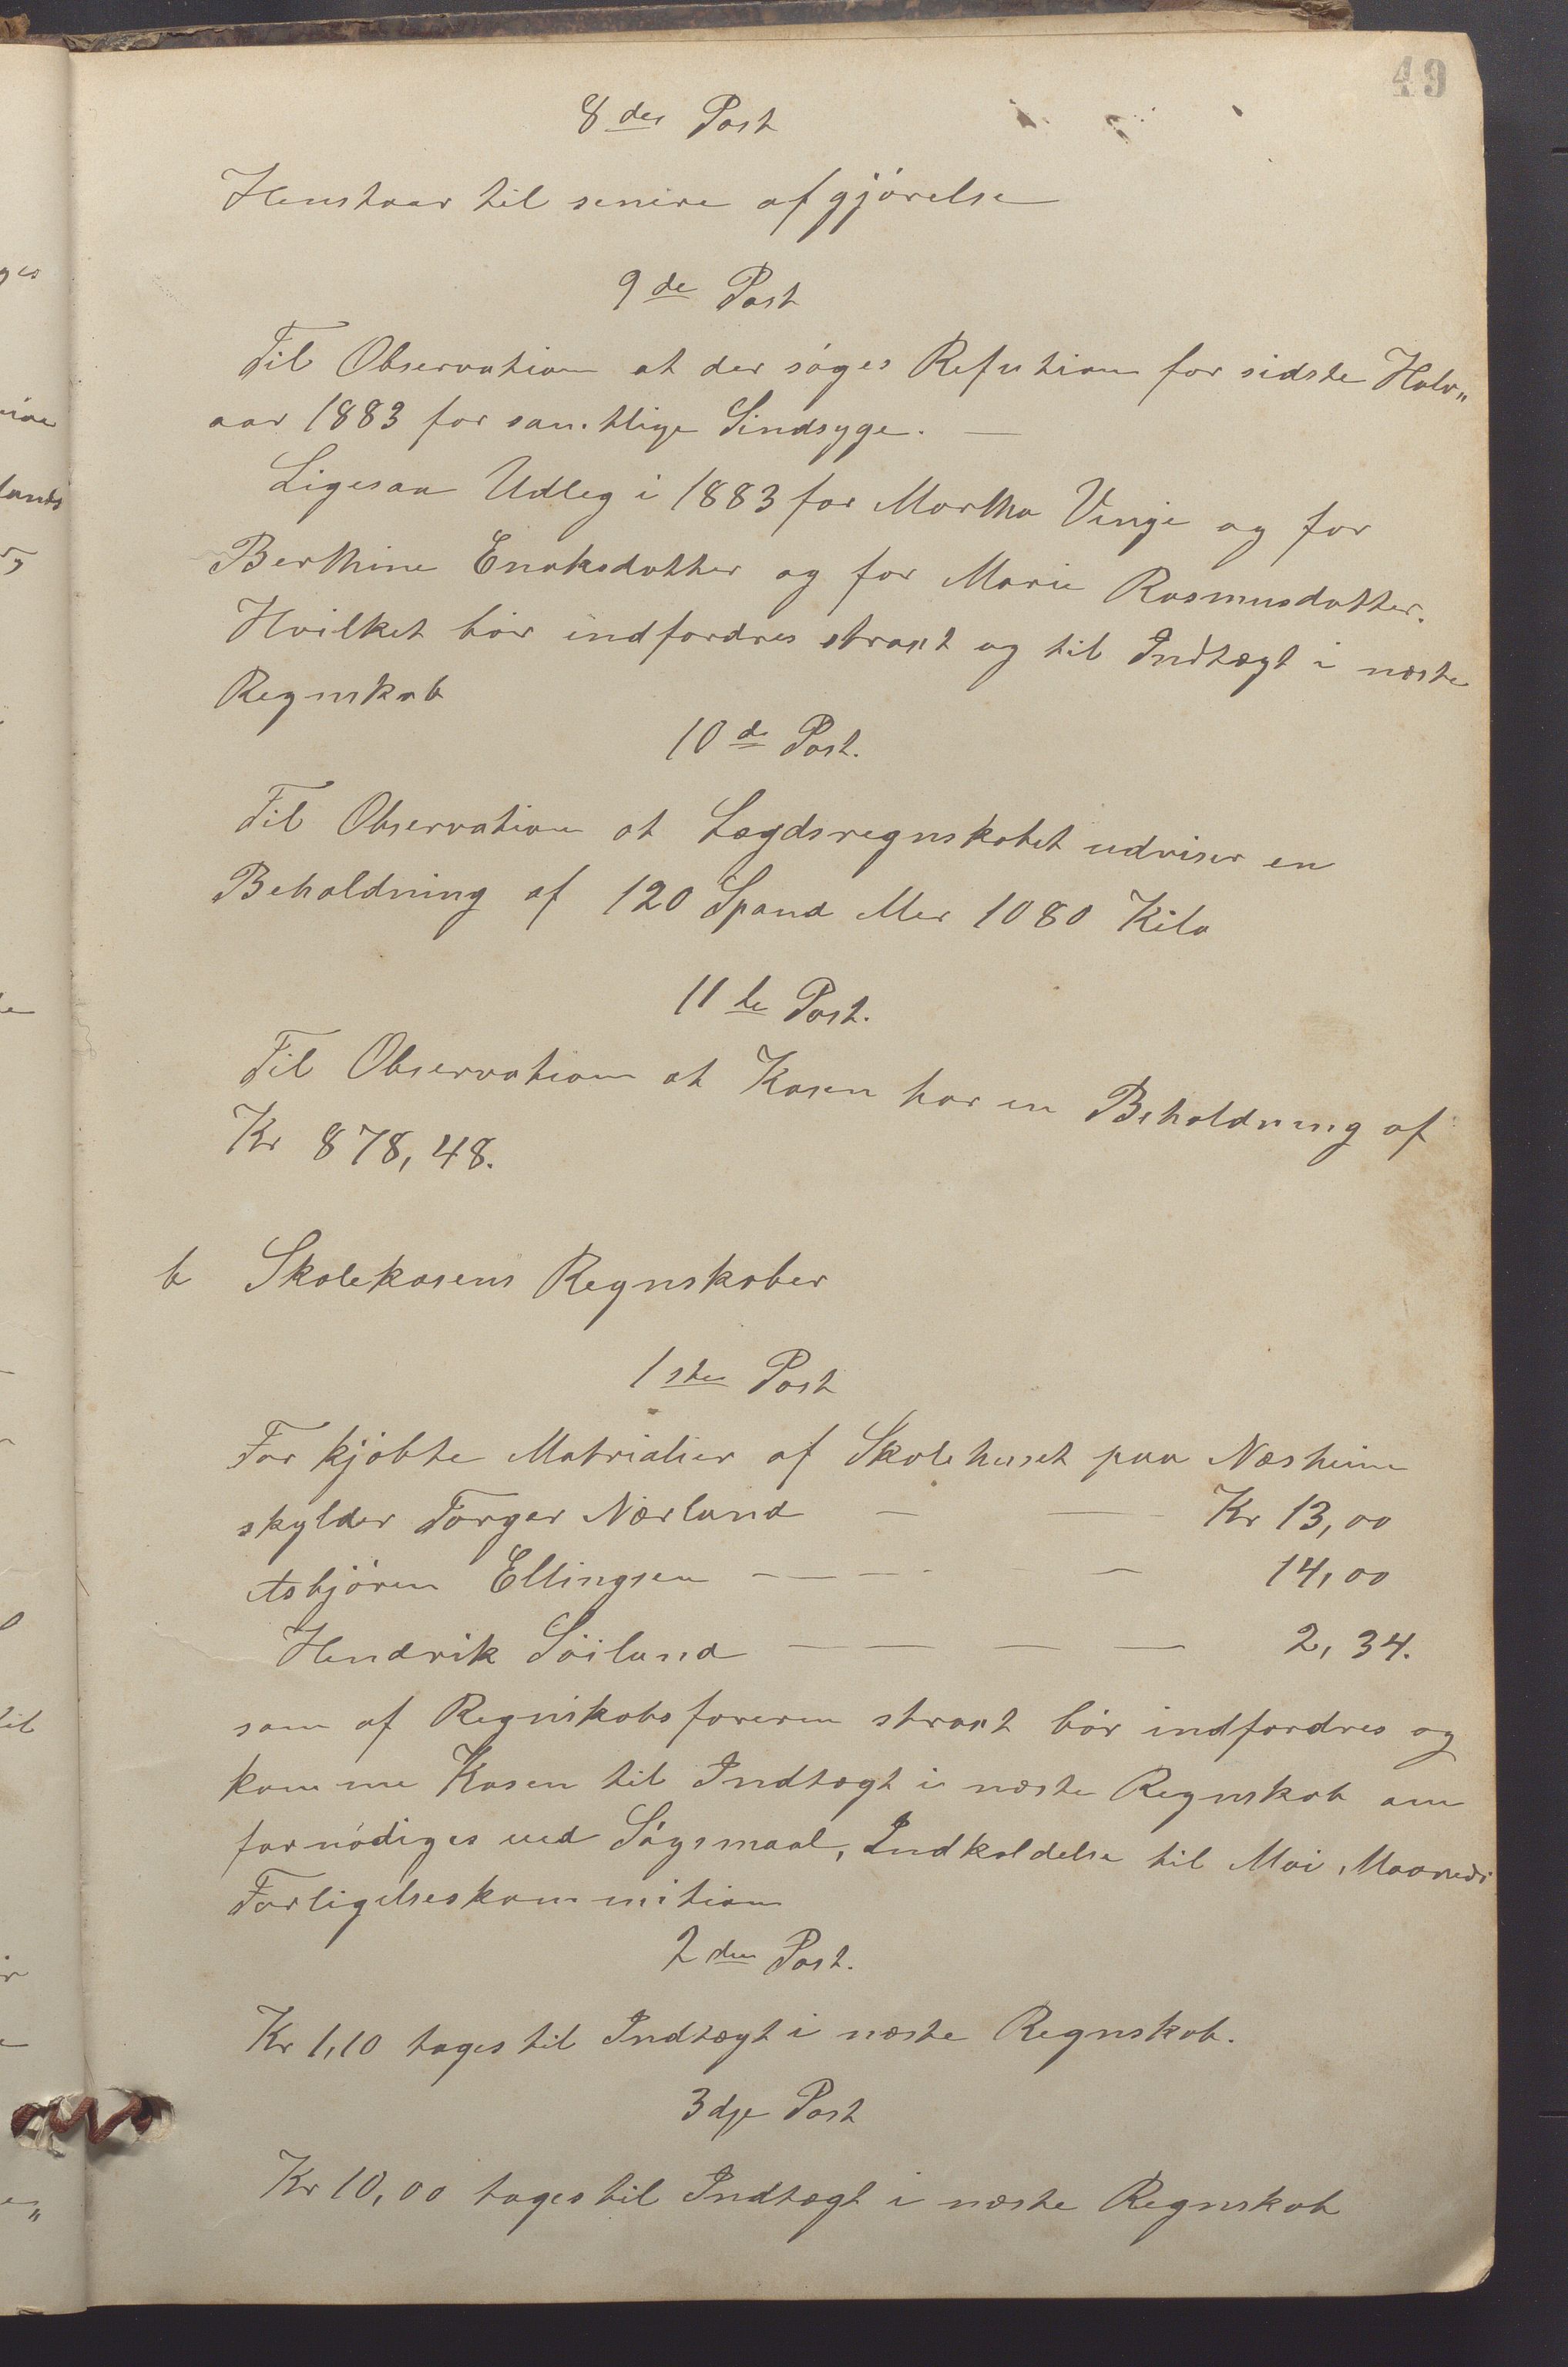 49
8de Post
Henstaar til senere afgjörelse
9de Post
Til Observation at der söges Refution for sidste Halv„
aar 1883 for samtlige Sindsyge. —
Ligesaa Udleg i 1883 for Martha Vinje og for
Berthine Enoksdatter og for Marie Rasmusdatter.
Hvilket bör indfordres straxt og til Indtægt i næste
Regnskab
10de Post.
Til Observation at Lægdsregnskabet udviser en
Beholdning af 120 Spand eller 1080 Kilo
11te Post.
Til Observation at Kasen har en Beholdning af
Kr 878,48.
b Skolekasens Regnskaber
1ste Post
For kjöbte Matrialier af Skolehuset paa Næsheim
skylder Torger Nærland — — Kr 13,00
Asbjören Ellingsen — — — — 14,00
Hendrik Söiland — — — — 2,34.
som af Regnskabsföreren straxt bör indfordres og
komme Kasen til Indtægt i næste Regnskab om
fornödiges ved Sögsmaal, Indkaldelse til Mai Maaneds
Forligelseskommition
2den Post.
Kr 1,10 tages til Indtægt i næste Regnskab.
3dje Post
Kr 10,00 tages til Indtægt i næste Regnskab